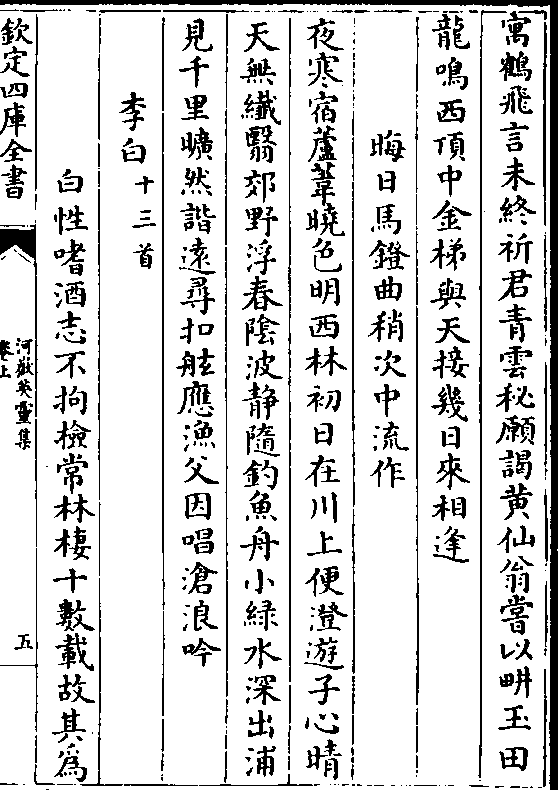 寓鶴飛言未終祈君青雲秘願謁黄仙翁嘗以畊玉田
龍鳴西頂中金梯與天接幾日來相逢
晦日馬鐙曲稍次中流作
夜寒宿蘆葦曉色明西林初日在川上便澄遊子心晴
天無纎翳郊野浮春陰波静隨釣魚舟小緑水深出浦
見千里曠然諧遠尋扣舷應漁父因唱滄浪吟
李白十三首
白性嗜酒志不拘檢常林棲十數載故其為
欽定四庫全書
河嶽英靈集
卷上
五